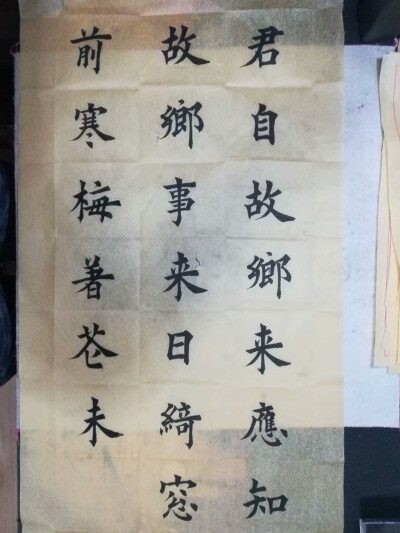 君自故鄉来應知
故鄉事来日綺窓
前寒梅著花未